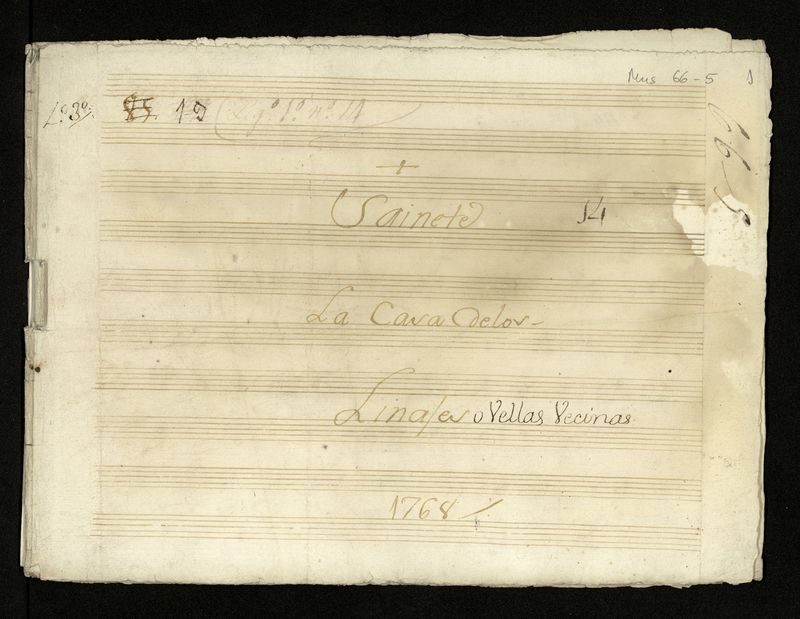 Mus 66-5 1
Lº 3º. 19 Lgº 1º nº 14
599
Sainete 14
La Casa delos-
Linajes o Vellas Vecinas
1768